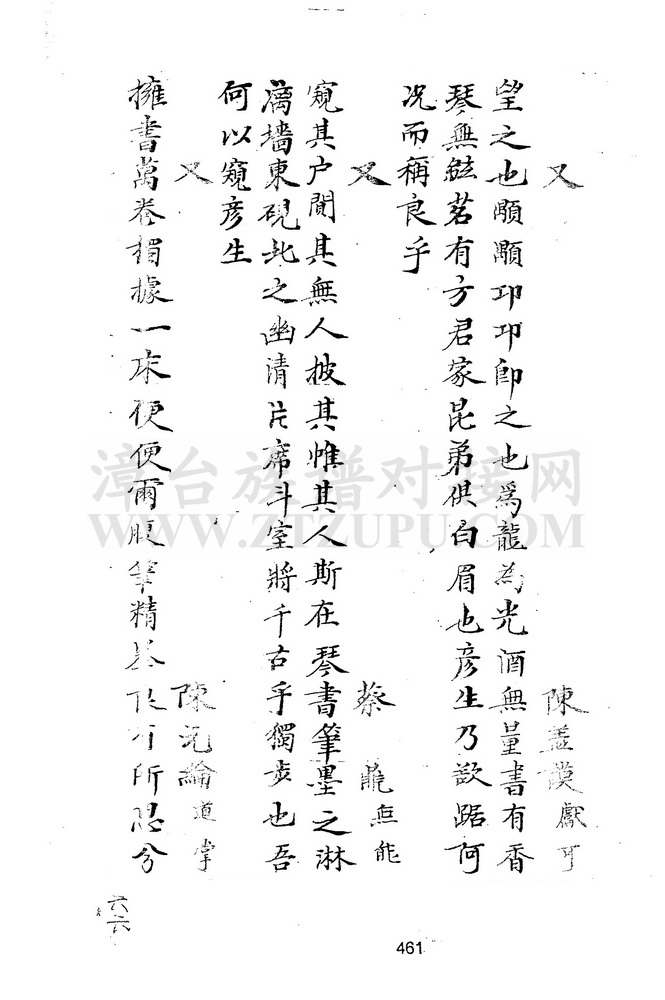 又 陳 獻可
望之也顒顒卭卭即之也爲龍為光酒無量書有香
琴無絃茗有方君家昆弟供白眉也彦生乃欲踞何
况而稱良乎
又 蔡 無能
窺其户閴其無人披其帷其人斯在琴書筆墨之淋
漓墻東硯北之幽清片席斗室將千古乎獨步也吾
何以窺彦生
又 陳元綸道掌
擁書萬卷獨據一床便便爾腹筆精 所思兮
六六
461
漳台族谱对接网
WWW.ZTZUPU.COM